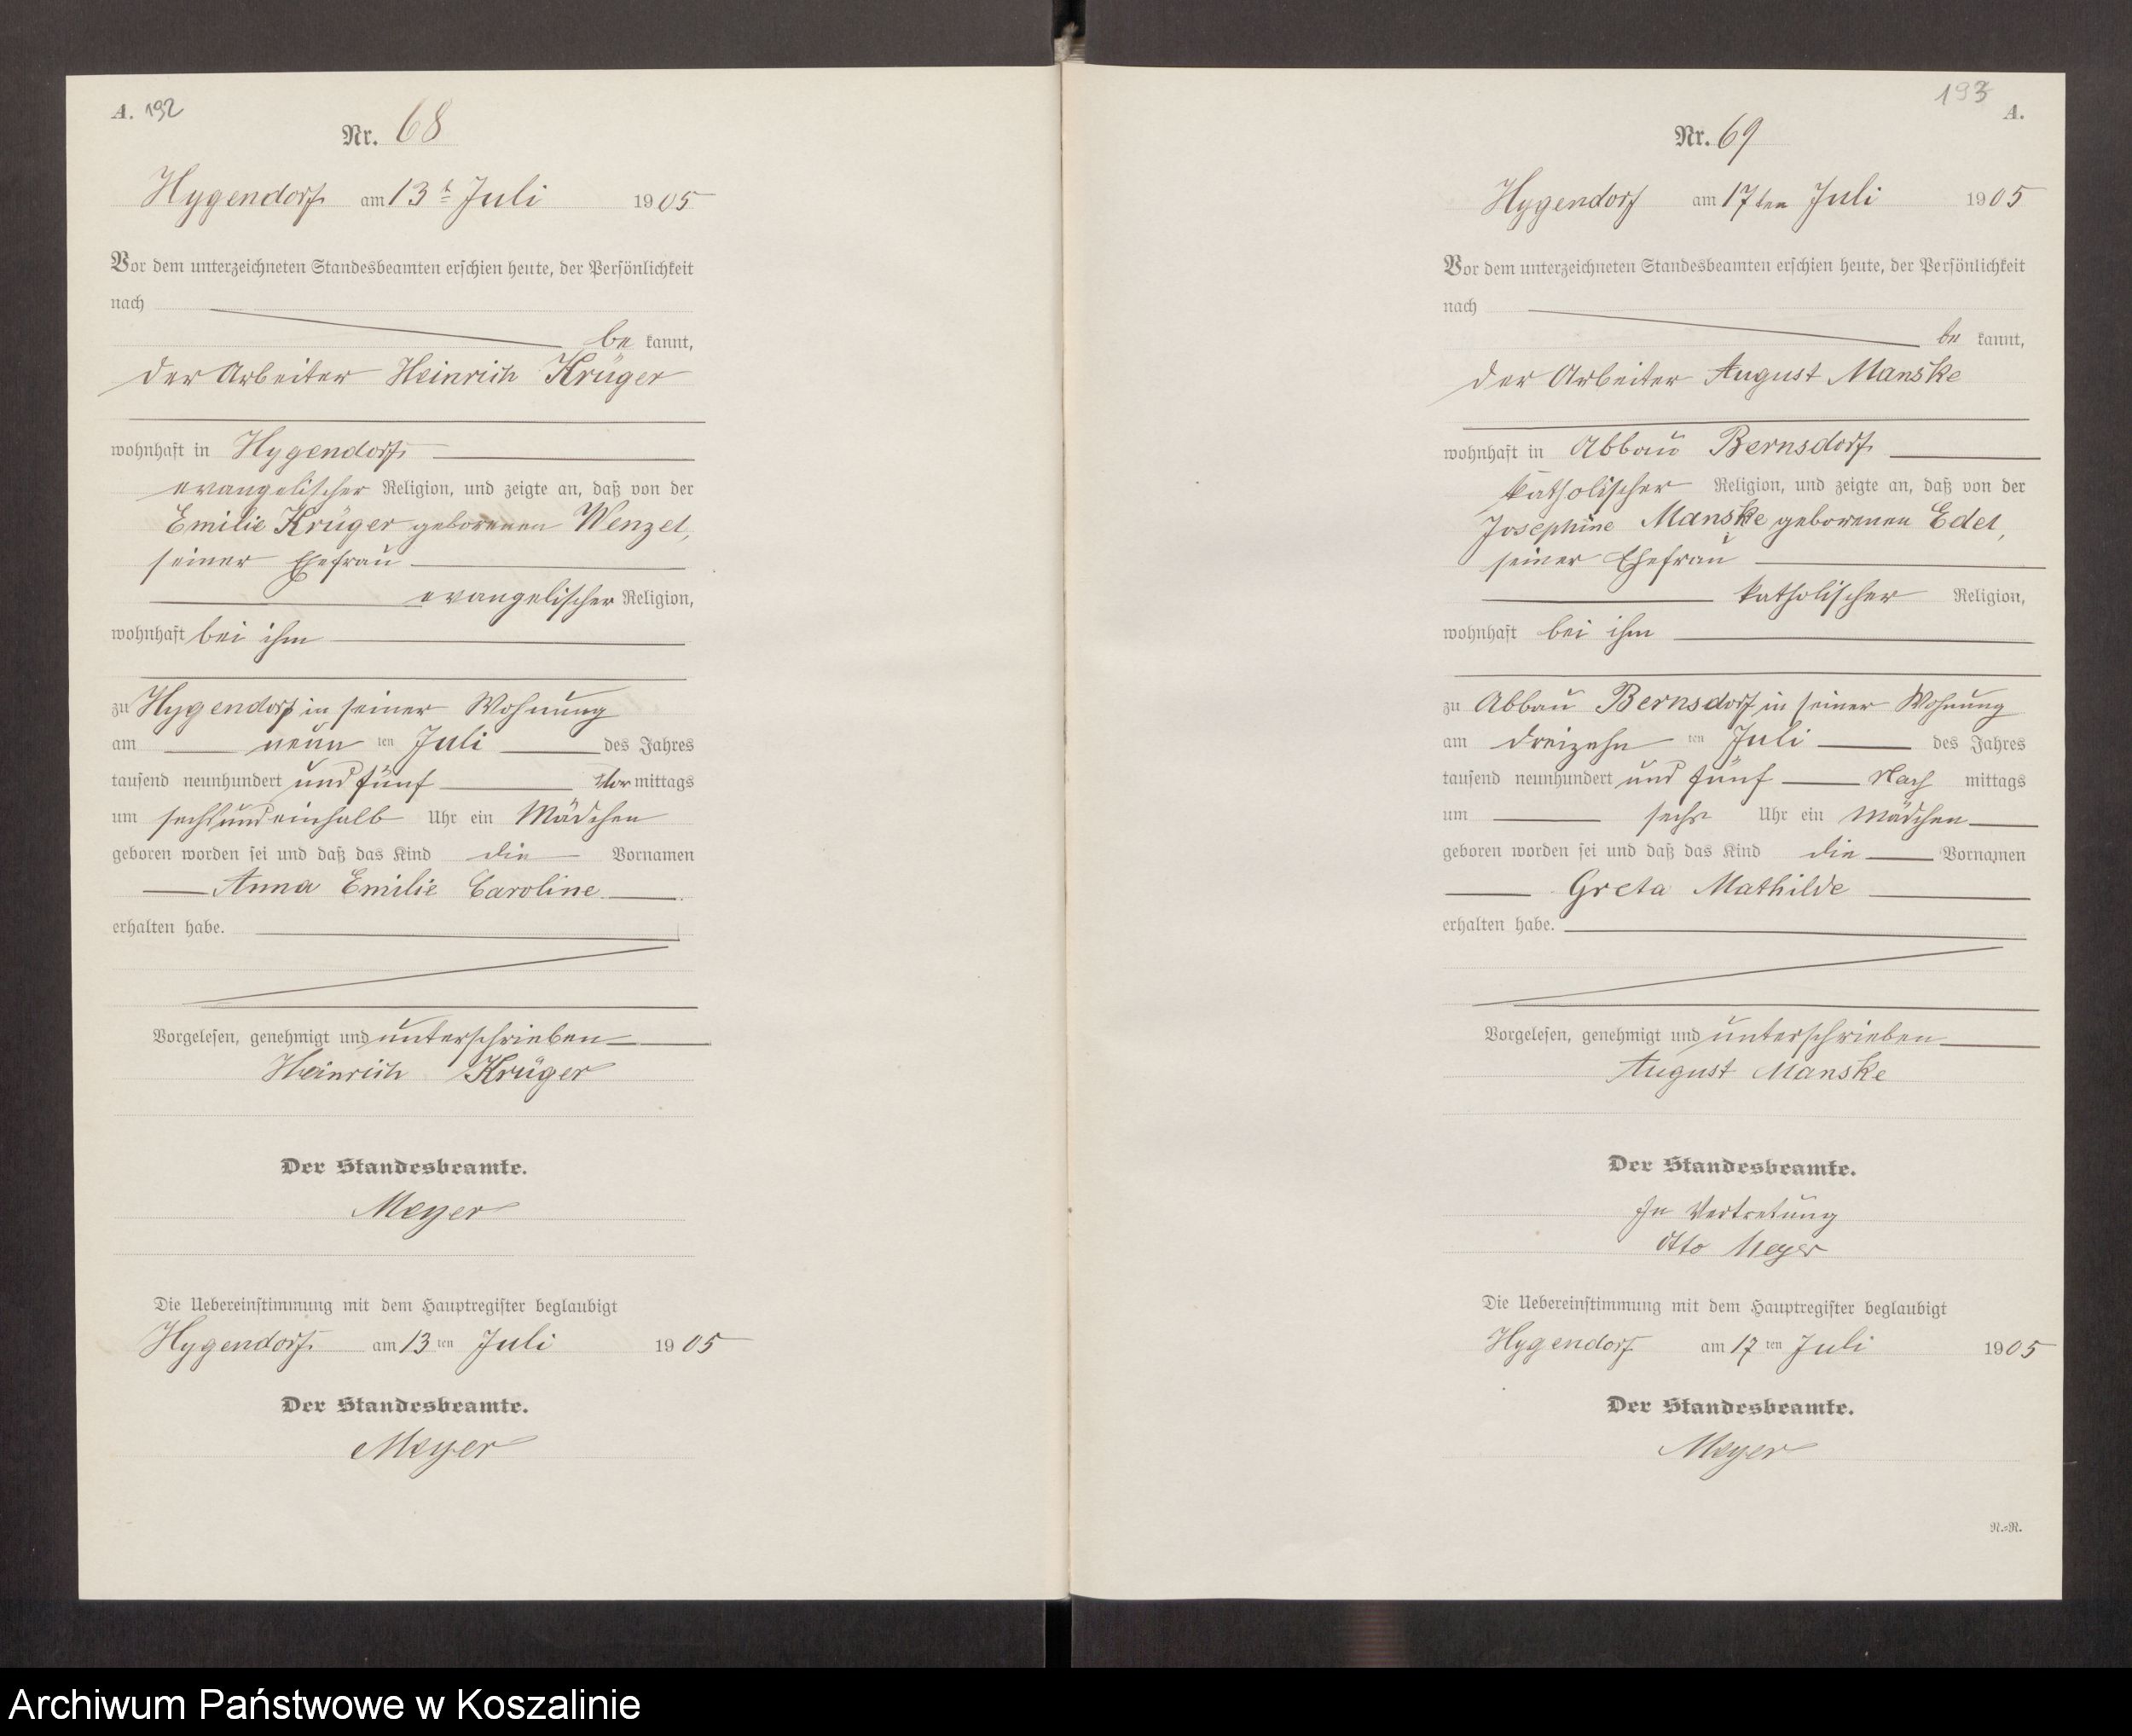 A. 192
Nr. 68
Hygendorf am 13t Juli 1905
Vor dem unterzeichneten Standesbeamten erschien heute, der Persönlichkeit
nach
be kannt,
der Arbeiter Heinrich Krüger
wohnhaft in Hygendorf
evangelischer Religion, und zeigte an, daß von der
Emilie Krüger geborenen Wenzel,
seiner Ehefrau
evangelischer Religion,
wohnhaft bei ihm
zu Hygendorf in seiner Wohnung
am neun ten Juli des Jahres
tausend neunhundert und fünf Vor mittags
um sechsundeinhalb Uhr ein Mädchen
geboren worden sei und daß das Kind die Vornamen
Anna Emilie Caroline
erhalten habe.
Vorgelesen, genehmigt und unterschrieben
Heinrich Krüger
Der Standesbeamte.
Meyer
Die Uebereinstimmung mit dem Hauptregister beglaubigt
Hygendorf am 13 ten Juli 1905
Der Standesbeamte.
Meyer
193 A.
Nr. 69
Hygendorf am 17ten Juli 1905
Vor dem unterzeichneten Standesbeamten erschien heute, der Persönlichkeit
nach
be kannt,
der Arbeiter August Manske
wohnhaft in Abbau Bernsdorf
katholischer Religion, und zeigte an, daß von der
Josephine Manske geborenen Edel,
seiner Ehefrau
katholischer Religion,
wohnhaft bei ihm
zu Abbau Bernsdorf in seiner Wohnung
am dreizehn ten Juli des Jahres
tausend neunhundert und fünf Nach mittags
um sechs Uhr ein Mädchen
geboren worden sei und daß das Kind die Vornamen
Greta Mathilde
erhalten habe.
Vorgelesen, genehmigt und unterschrieben
August Manske
Der Standesbeamte.
In Vertretung
Otto Meyer
Die Uebereinstimmung mit dem Hauptregister beglaubigt
Hygendorf am 17 ten Juli 1905
Der Standesbeamte.
Meyer
N.=R.
Archiwum Państwowe w Koszalinie